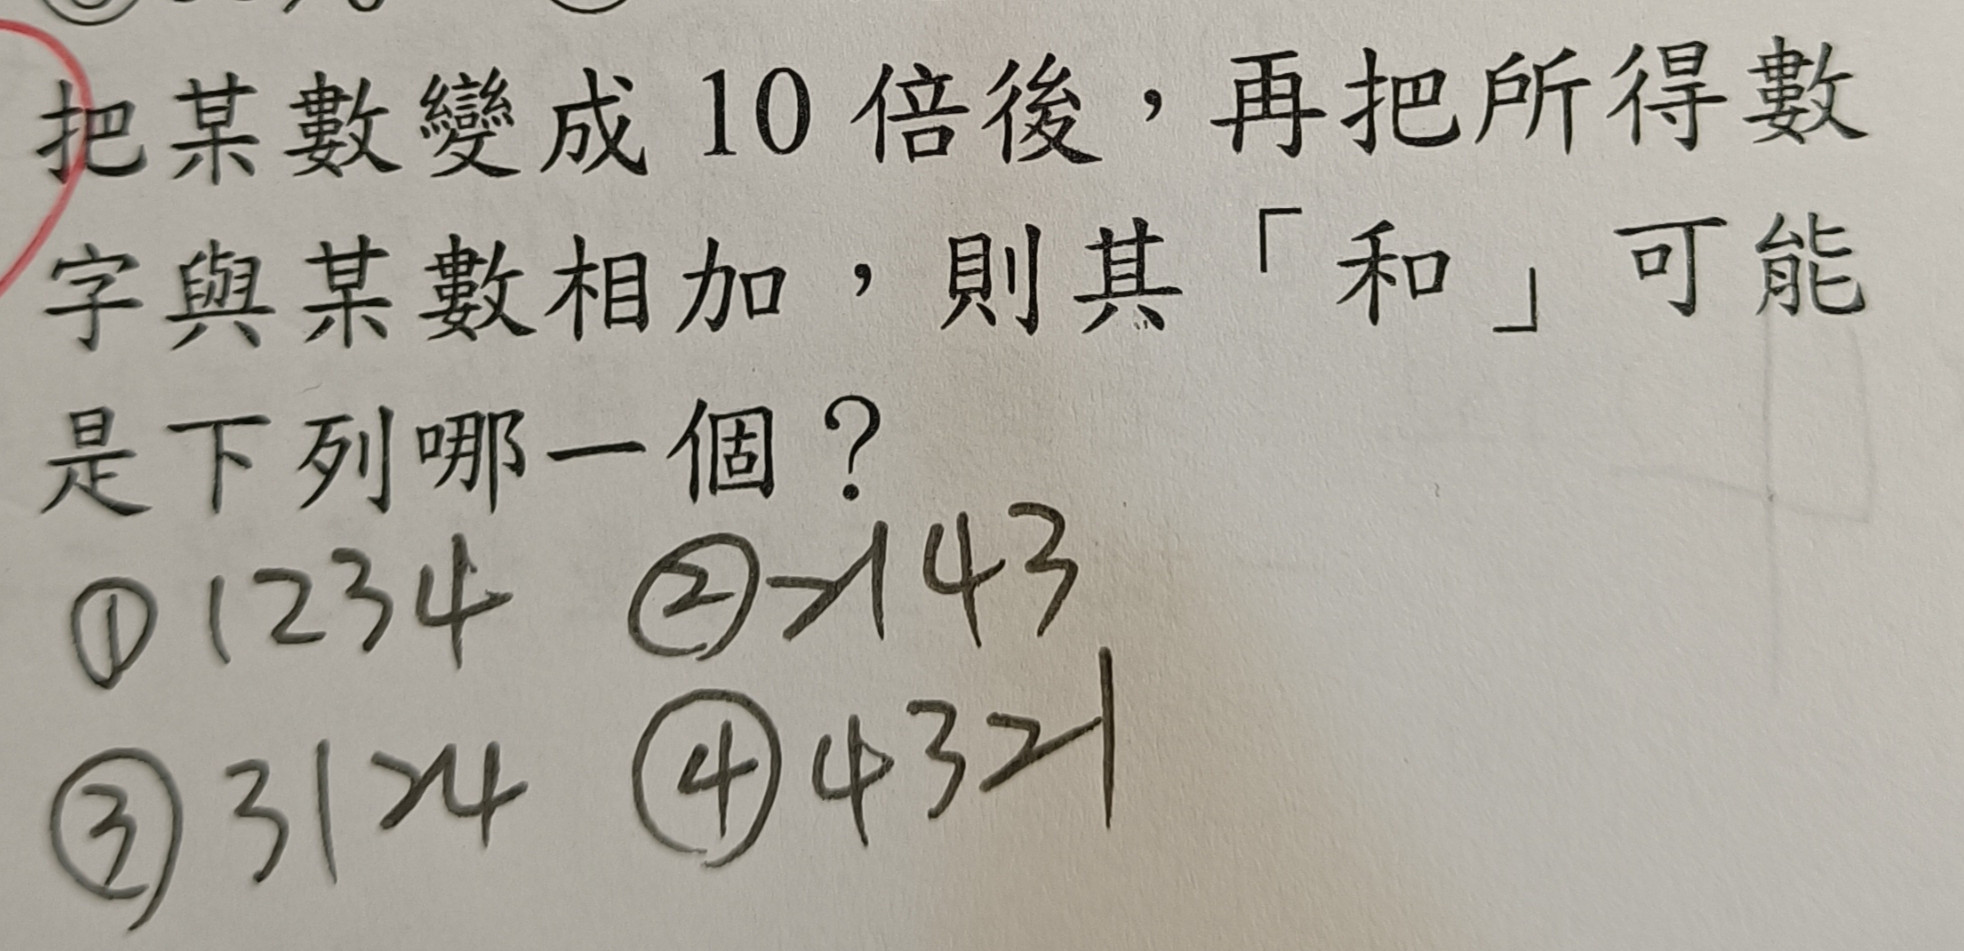 把某數變成 10 倍後，再把所得數
字與某數相加，則其「和」可能
是下列哪一個？
①1234 ②2143
③3124 ④4321